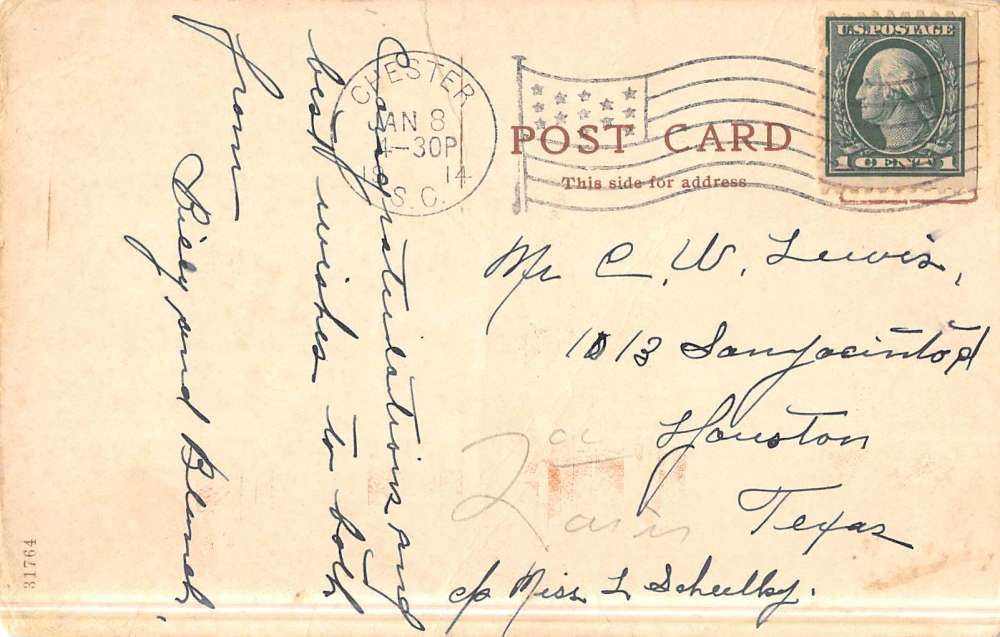 Congratulations and
best wishes to both
from
Billy and Blanch.
CHESTER
JAN 8
4-30P
1914
S.C.
U.S. POSTAGE
1 CENT 1
POST CARD
This side for address
Mr C. W. Lewis,
1013 San Jacinto st
Houston
Texas
c/o Miss L
31764